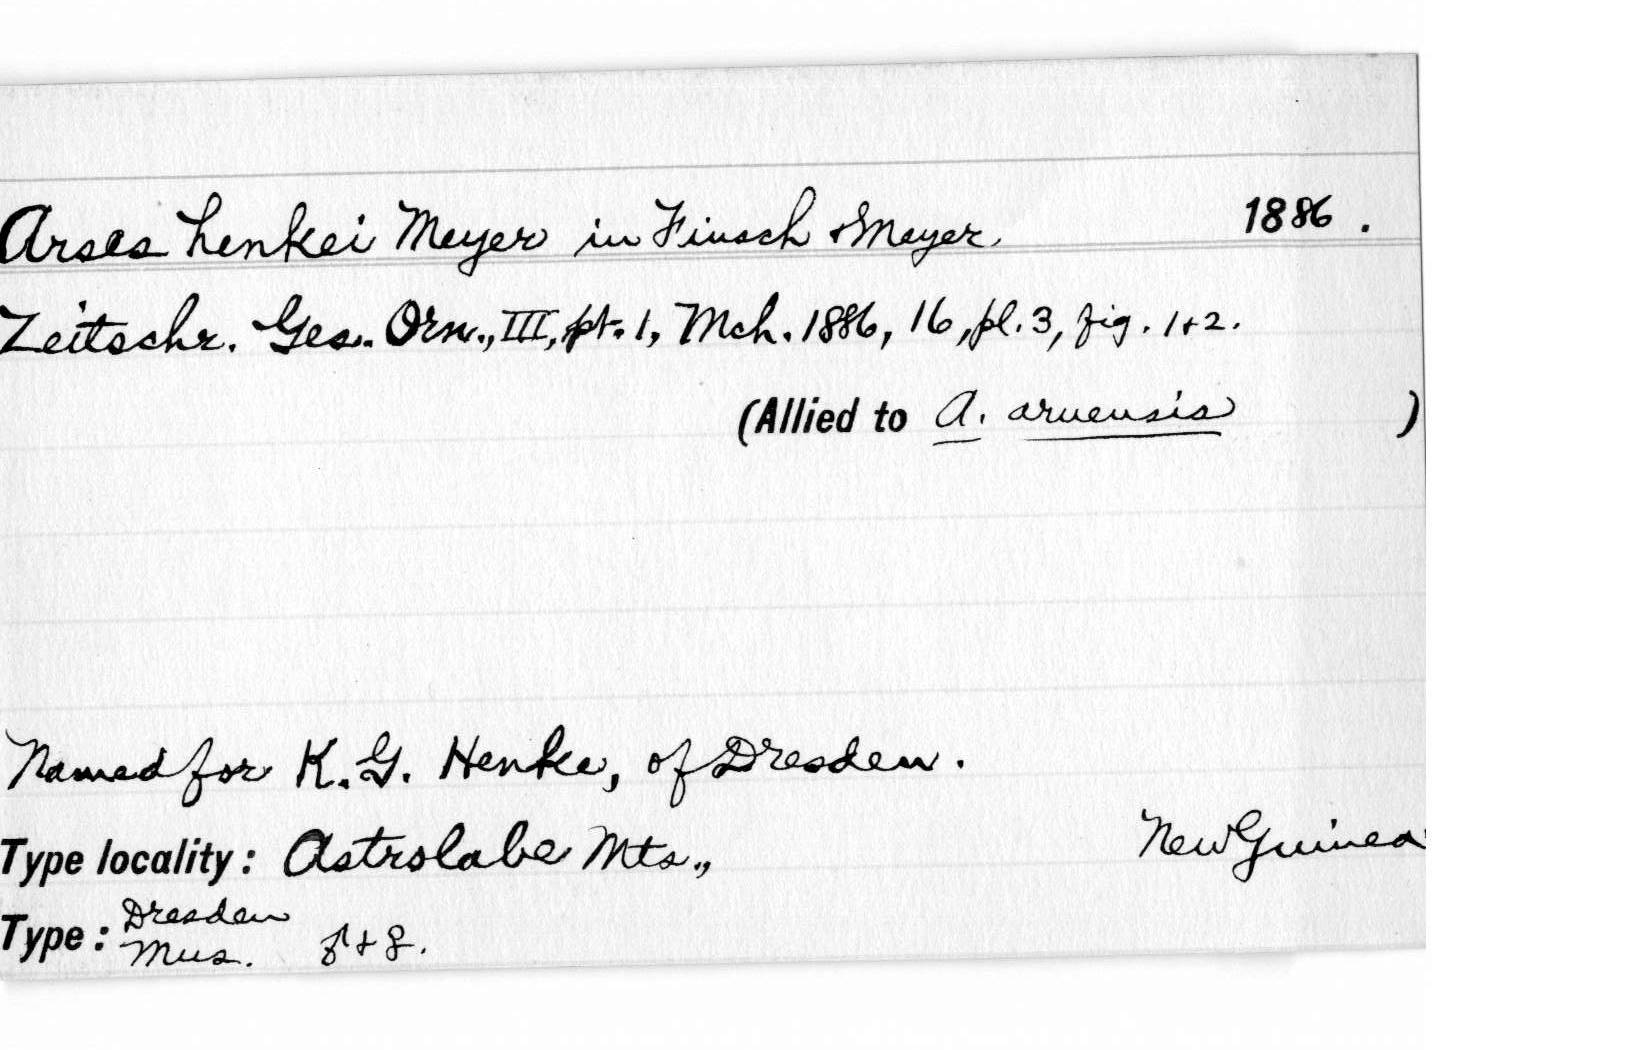 Arses henkei Meyer in Finsch & Meyer. 1886.
Zeitschr. Ges. Orn., III, pt. 1, Mch. 1886, 16, pl. 3, fig. 1+2.
(Allied to A. aruensis )
Named for K. G. Henke, of Dresden.
Type locality: Astrolabe Mts., New Guinea
Type: Dresden
Mus. ♂ + ♀.